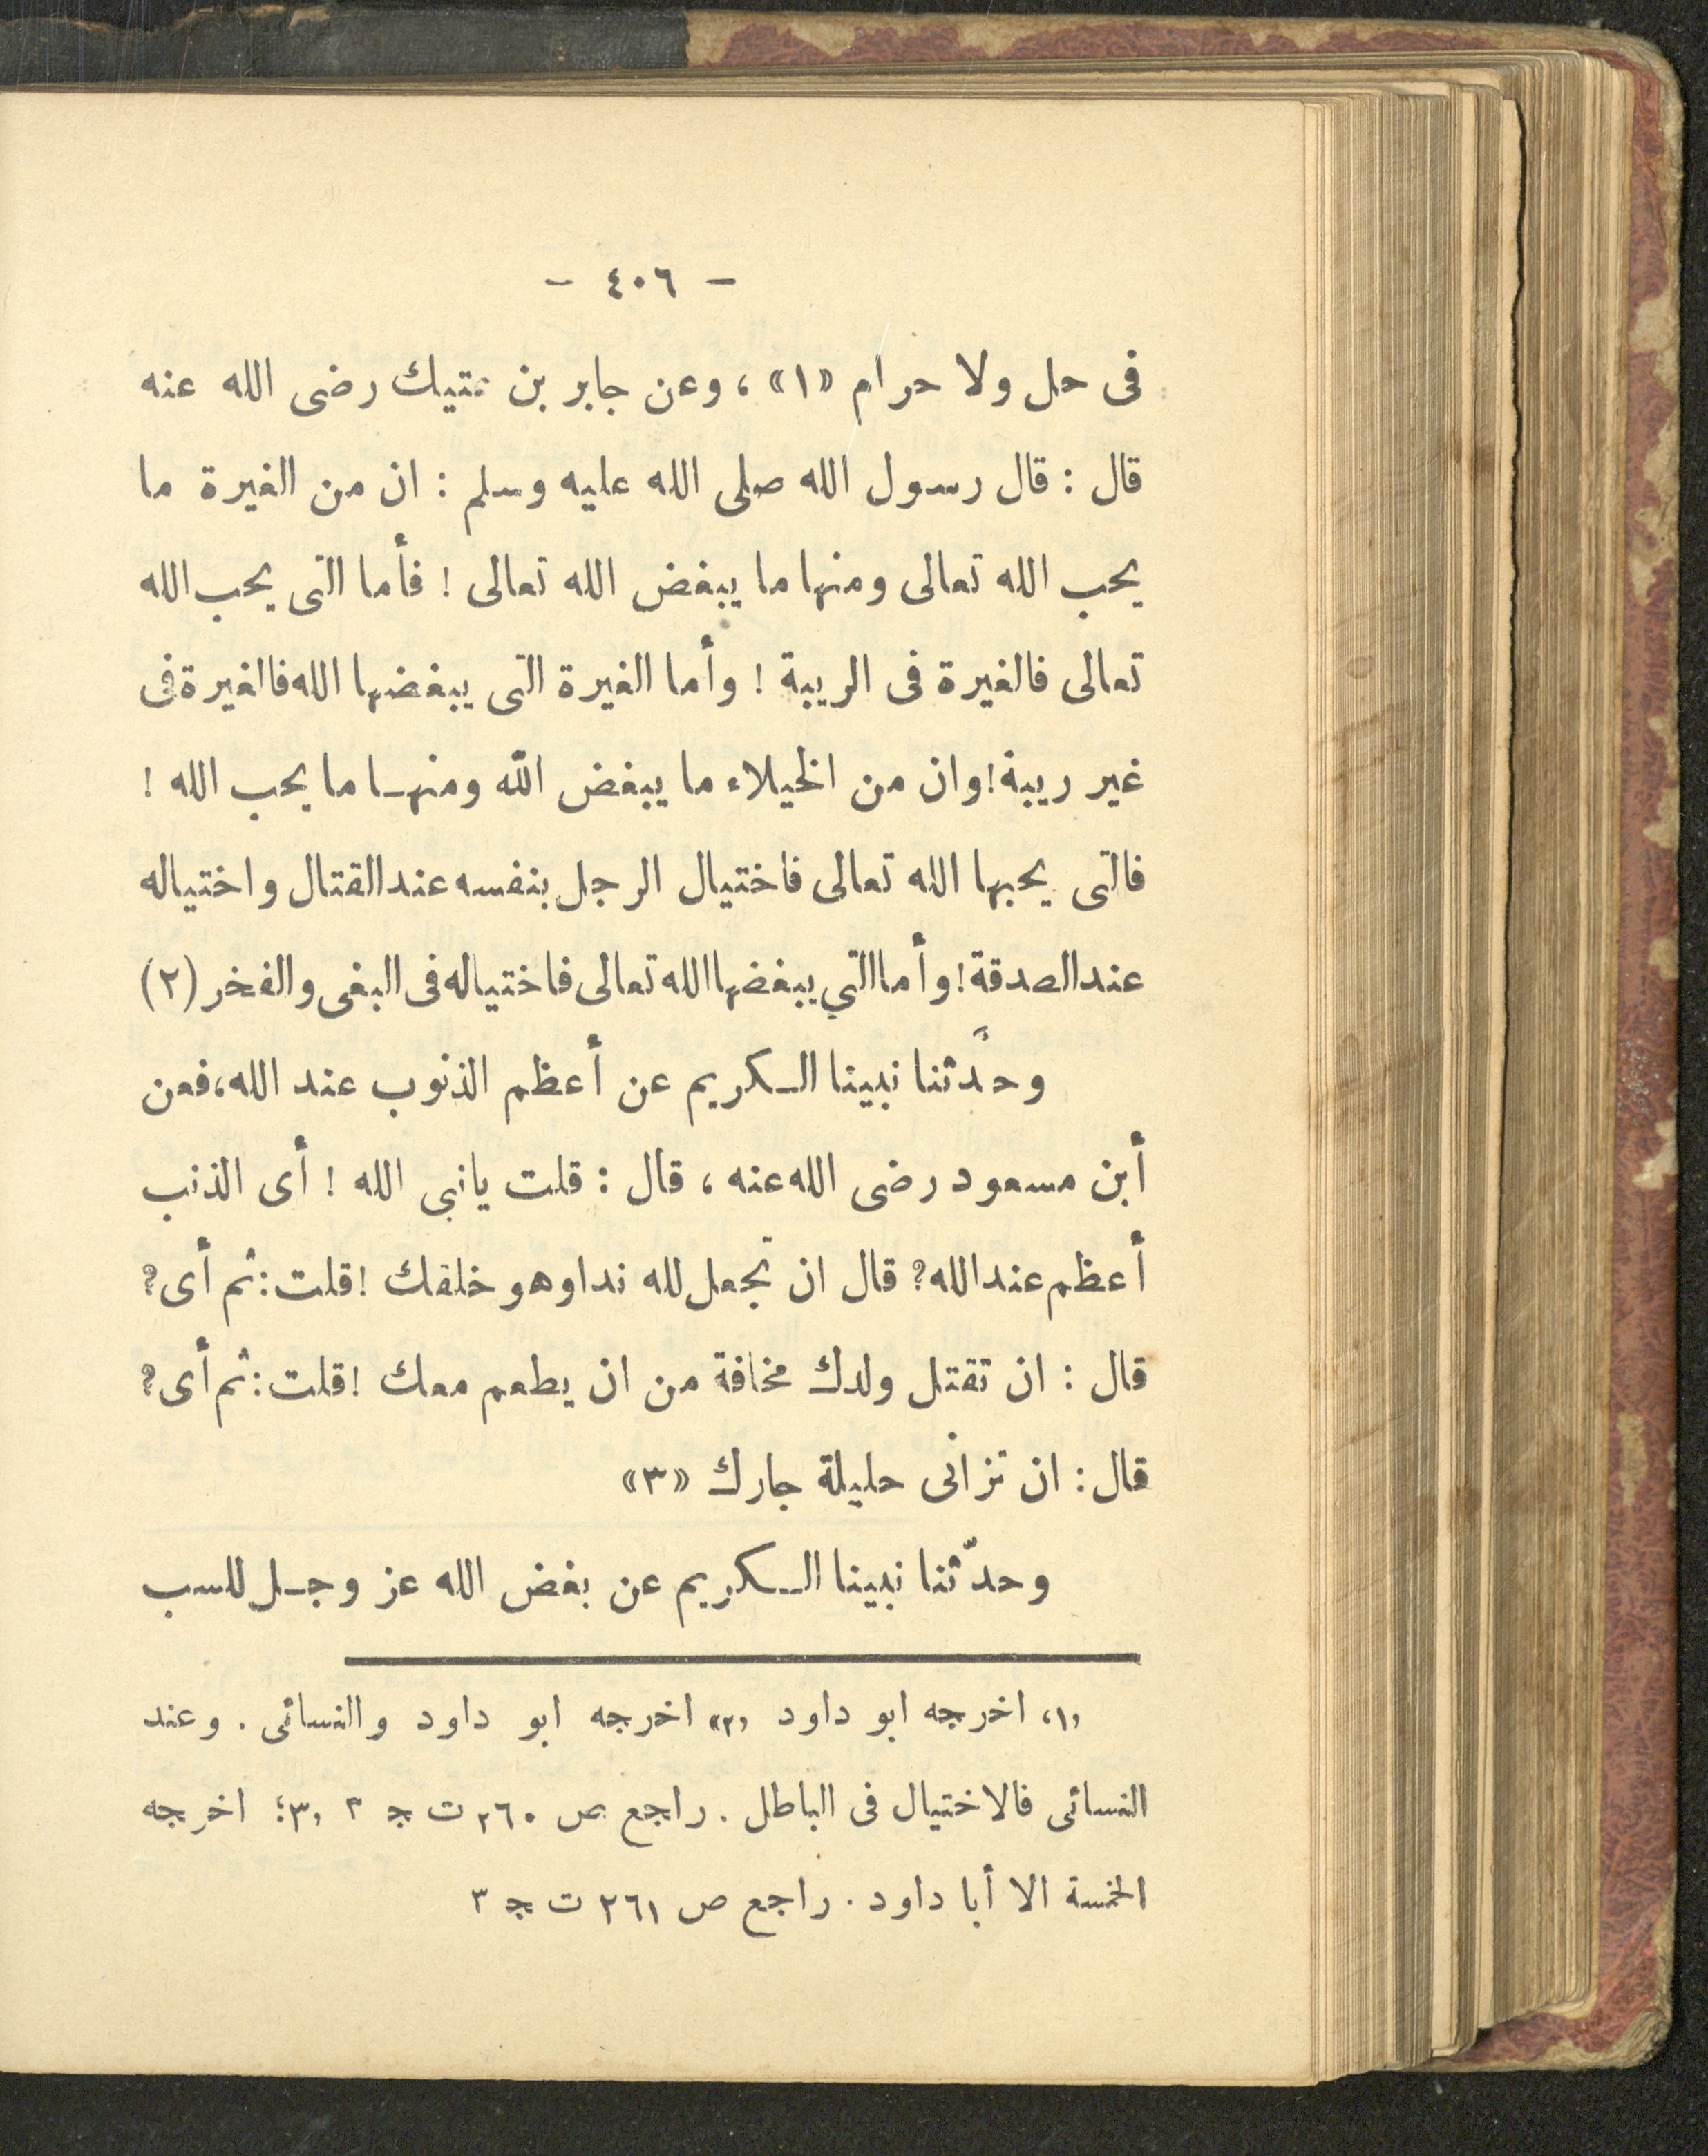 - ٤٠٦ -
فى حل ولا حرام «١» ، وعن جابر بن عتيك رضى الله عنه
قال : قال رسول الله صلى الله عليه وسلم : ان من الغيرة ما
يحب الله تعالى ومنها ما يبغض الله تعالى ! فأما التى يحب الله
تعالى فالغيرة فى الريبة ! وأما الغيرة التى يبغضها الله فالغيرة فى
غير ريبة ! وان من الخيلاء ما يبغض الله ومنهـا ما يحب الله !
فالتى يحبها الله تعالى فاختيال الرجل بنفسه عند القتال واختياله
عند الصدقة ! وأما التي يبغضها الله تعالى فاختياله فى البغى والفخر (٢)
وحدّثنا نبينا الـكريم عن أعظم الذنوب عند الله ، فعن
أبن مسعود رضى الله عنه ، قال : قلت يانبى الله ! أى الذنب
أعظم عند الله ؟ قال ان تجعل لله ندا وهو خلقك ! قلت : ثم أى ؟
قال : ان تقتل ولدك مخافة من ان يطعم معك ! قلت : ثم أى ؟
قال : ان تزانى حليلة جارك «٣»
وحدّثنا نبينا الـكريم عن بغض الله عز وجـل للسب
«١» اخرجه ابو داود «٢» اخرجه ابو داود والنسائى . وعند
النسائى فالاختيال فى الباطل . راجع ص ٢٦٠ ت ج ٣ «٣» اخرجه
الخمسة الا أبا داود . راجع ص ٢٦١ ت ج ٣